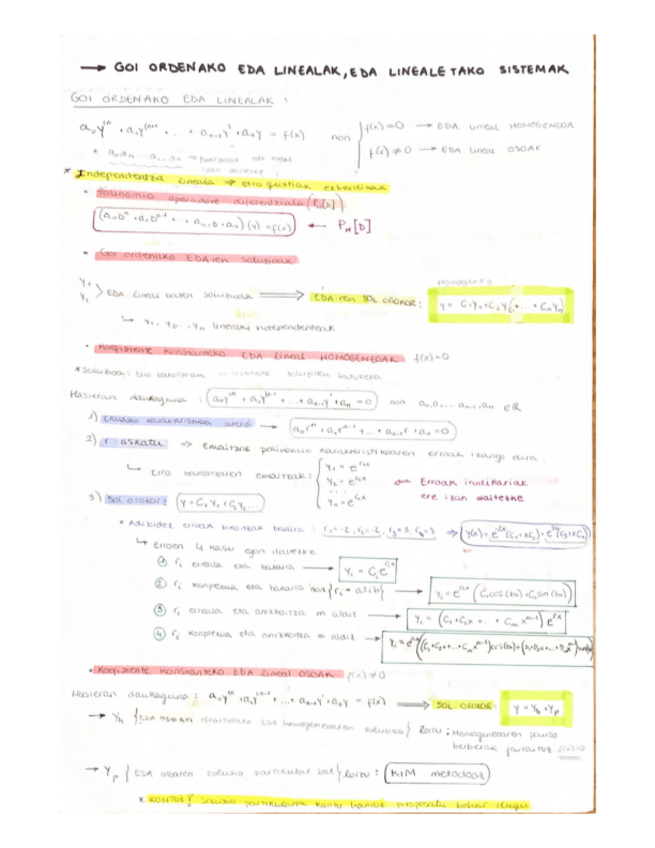 → GOI ORDENAKO EDA LINEALAK, EDA LINEALETAKO SISTEMAK
GOI ORDENAKO EDA LINEALAK :
a₀yⁿ⁾ + a₁yⁿ⁻¹⁾ + ... + aₙ₋₁y' + aₙy = f(x) non { f(x)=0 → EDA lineal HOMOGENEOA
f(x)≠0 → EDA lineal OSOAK
* Independentzia lineala → erro guztiak ezberdinak
• Polinomio operadore diferentziala (Pₙ[D])
(a₀Dⁿ + a₁Dⁿ⁻¹ + ... + aₙ₋₁D + aₙ)(y) = f(x) ← Pₙ[D]
• Goi ordenako EDA-ren soluzioak
Homogeneo
EDA lineal baten soluzioak ⟹ EDA-ren SOL OROKOR:
linealki independenteak
• Koefiziente konstanteko EDA lineal HOMOGENEOAK f(x)=0
* Soluzioa:
Hasieran daukaguna : a₀yⁿ⁾ + a₁yⁿ⁻¹⁾ + ... + aₙ₋₁y' + aₙ = 0 non a₀, a₁, ... aₙ₋₁, aₙ ∈ R
1) Ekuazio karakteristikoa atera → a₀rⁿ + a₁rⁿ⁻¹ + ... + aₙ₋₁r + aₙ = 0
2) r askatu ⇒ Emaitzak polinomio karakteristikoaren erroak izango dira.
↳ Erro bakoitzaren emaitzak :
← Erroak irudikariak
ere izan daitezke
3) SOL OROKOR: y = C₁y₁ + C₂y₂...
* Adibidez erroak hauek badira : r₁=-2, r₂=-2, r₃=3, r₄=3 ⇒ y(x) = e⁻²ˣ(C₁+xC₂) + e³ˣ(C₃+xC₄)
↳ Erroen 4 kasu egon daitezke
① rᵢ erreala eta bakarra →
② rᵢ konplexua eta bakarra non {r = a±ib} → yᵢ = eᵃˣ (C₁cos(bx)+C₂sin(bx))
③ rᵢ erreala eta anizkoitza m aldiz → yᵢ = (C₁+C₂x+...+Cₘxᵐ⁻¹) eʳˣ
④ rᵢ konplexua eta anizkoitza m aldiz →
• Koefiziente konstanteko EDA lineal OSOAK f(x) ≠ 0
Hasieran daukaguna : a₀yⁿ⁾ + a₁yⁿ⁻¹⁾ + ... + aₙ₋₁y' + aₙy = f(x) ⟹ SOL. OROKOR: y = yₕ + yₚ
→ yₕ { EDA EDA homogeneoaren soluzioa } lortu : Homogeneoaren pauso
berberak jarraituz f(x)=0
→ yₚ { EDA osoaren soluzio partikular bat } lortu : KIM metodoaz
* KONTUZ! soluzio partikularra kontu handiz proposatu behar dugu.